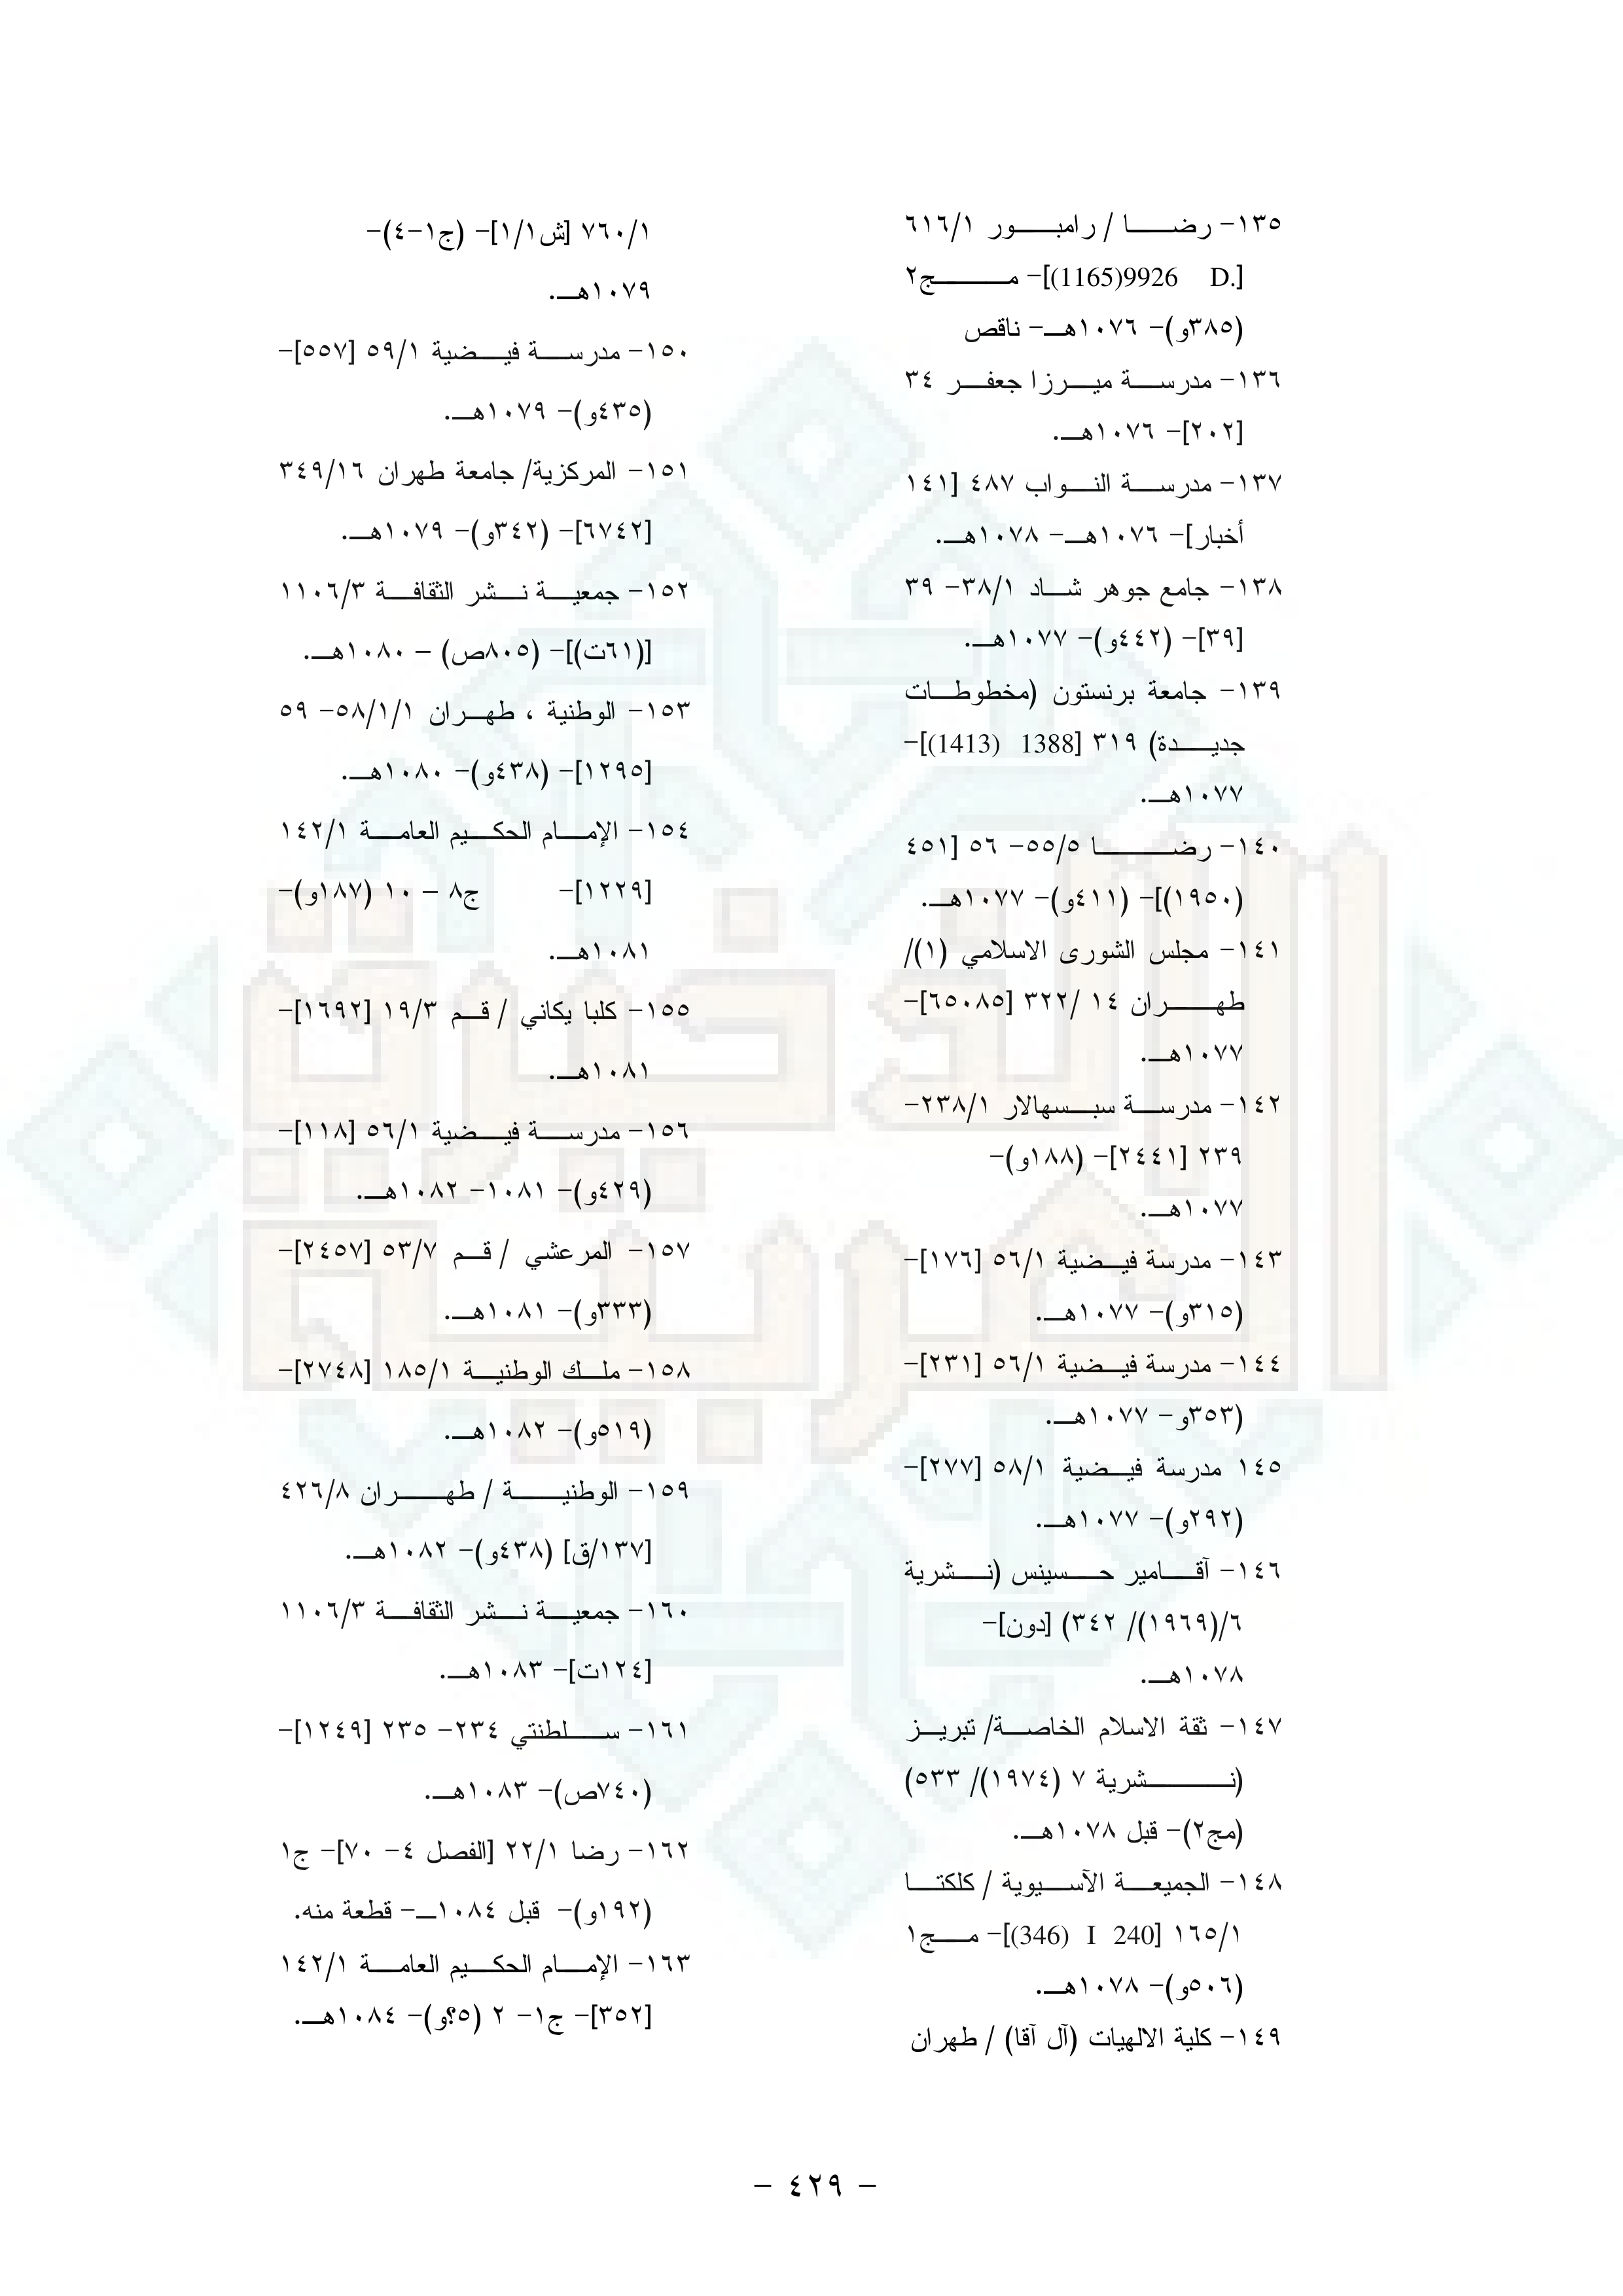 ١٣٥- رضا / رامبور ٦١٦/١
[D. 9926(1165)]- مج٢
(٣٨٥و)- ١٠٧٦هـ- ناقص
١٣٦- مدرسة ميرزا جعفر ٣٤
[٢٠٢]- ١٠٧٦هـ.
١٣٧- مدرسة النواب ٤٨٧ [١٤١
أخبار]- ١٠٧٦هـ- ١٠٧٨هـ.
١٣٨- جامع جوهر شاد ٣٨/١- ٣٩
[٣٩]- (٤٤٢و)- ١٠٧٧هـ.
١٣٩- جامعة برنستون (مخطوطات
جديدة) ٣١٩ [1388 (1413)]-
١٠٧٧هـ.
١٤٠- رضا ٥٥/٥- ٥٦ [٤٥١
(١٩٥٠)]- (٤١١و)- ١٠٧٧هـ.
١٤١- مجلس الشورى الاسلامي (١)/
طهران ١٤ /٣٢٢ [٦٥٠٨٥]-
١٠٧٧هـ.
١٤٢- مدرسة سبسهالار ٢٣٨/١-
٢٣٩ [٢٤٤١]- (١٨٨و)-
١٠٧٧هـ.
١٤٣- مدرسة فيضية ٥٦/١ [١٧٦]-
(٣١٥و)- ١٠٧٧هـ.
١٤٤- مدرسة فيضية ٥٦/١ [٢٣١]-
(٣٥٣و- ١٠٧٧هـ.
١٤٥ مدرسة فيضية ٥٨/١ [٢٧٧]-
(٢٩٢و)- ١٠٧٧هـ.
١٤٦- آقامير حسينس (نشرية
٦/(١٩٦٩)/ ٣٤٢) [دون]-
١٠٧٨هـ.
١٤٧- ثقة الاسلام الخاصة/ تبريز
(نشرية ٧ (١٩٧٤)/ ٥٣٣)
(مج٢)- قبل ١٠٧٨هـ.
١٤٨- الجميعة الآسيوية / كلكتا
١٦٥/١ [240 I (346)]- مج١
(٥٠٦و)- ١٠٧٨هـ.
١٤٩- كلية الالهيات (آل آقا) / طهران
٧٦٠/١ [ش١/١]- (ج١-٤)-
١٠٧٩هـ.
١٥٠- مدرسة فيضية ٥٩/١ [٥٥٧]-
(٤٣٥و)- ١٠٧٩هـ.
١٥١- المركزية/ جامعة طهران ٣٤٩/١٦
[٦٧٤٢]- (٣٤٢و)- ١٠٧٩هـ.
١٥٢- جمعية نشر الثقافة ١١٠٦/٣
[(٦١ت)]- (٨٠٥ص) – ١٠٨٠هـ.
١٥٣- الوطنية ، طهران ٥٨/١/١- ٥٩
[١٢٩٥]- (٤٣٨و)- ١٠٨٠هـ.
١٥٤- الإمام الحكيم العامة ١٤٢/١
[١٢٢٩]- ج٨ – ١٠ (١٨٧و)-
١٠٨١هـ.
١٥٥- كلبا يكاني / قم ١٩/٣ [١٦٩٢]-
١٠٨١هـ.
١٥٦- مدرسة فيضية ٥٦/١ [١١٨]-
(٤٢٩و)- ١٠٨١- ١٠٨٢هـ.
١٥٧- المرعشي / قم ٥٣/٧ [٢٤٥٧]-
(٣٣٣و)- ١٠٨١هـ.
١٥٨- ملك الوطنية ١٨٥/١ [٢٧٤٨]-
(٥١٩و)- ١٠٨٢هـ.
١٥٩- الوطنية / طهران ٤٢٦/٨
[١٣٧/ق] (٤٣٨و)- ١٠٨٢هـ.
١٦٠- جمعية نشر الثقافة ١١٠٦/٣
[١٢٤ت]- ١٠٨٣هـ.
١٦١- سلطنتي ٢٣٤- ٢٣٥ [١٢٤٩]-
(٧٤٠ص)- ١٠٨٣هـ.
١٦٢- رضا ٢٢/١ [الفصل ٤- ٧٠]- ج١
(١٩٢و)- قبل ١٠٨٤ــ- قطعة منه.
١٦٣- الإمام الحكيم العامة ١٤٢/١
[٣٥٢]- ج١- ٢ (٥؟و)- ١٠٨٤هـ.
- ٤٢٩ -
الذخيرة
العربية